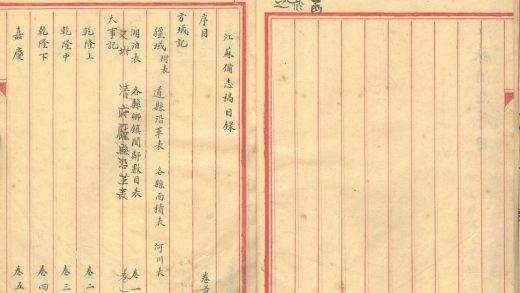 江蘇備志稿目錄
序目 卷首
方域記
疆域附表 道縣沿革表 各縣面積表 河川表
湖泊表 各縣鄉鎮閭鄰數目表 卷一
又附 清府廳縣沿革表
大事記
乾隆上 卷二
乾隆中 卷三
乾隆下 卷四
嘉慶 卷五